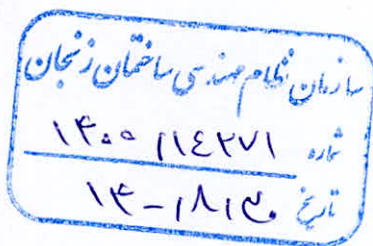 سازمان نظام مهندسی ساختمان زنجان
شماره ۱۴۰۰/۱۱۴۲۷۱
تاریخ ۱۴۰۰/۸/۳۰